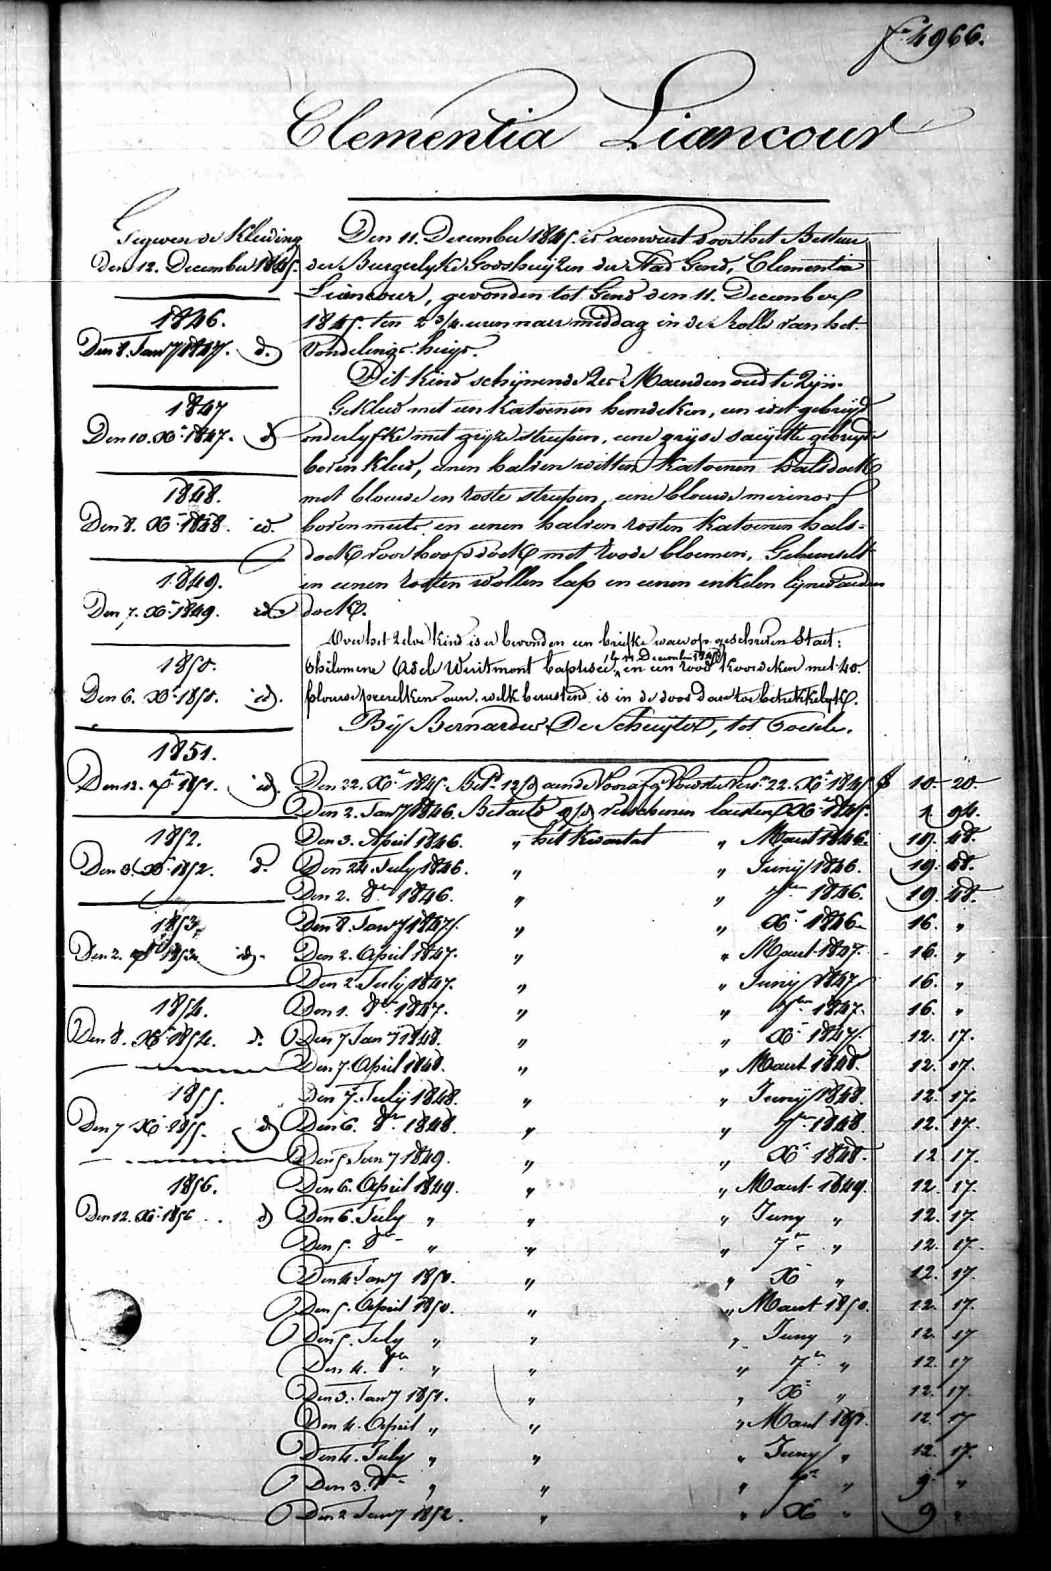 f° 4966.
Clementia Liancour
Gegeven de Kleeding
Den 12. December 1845.
1846.
Den 8. Janry 1847. id.
1847
Den 10. Xbr 1847. id
1848.
Den 8. Xbr 1848. id.
1849.
Den 7. Xbr 1849. id
1850.
Den 6. Xbr 1850. id.
1851.
Den 12. Xbr 1851. id.
1852.
Den 3. Xbr 1852. id.
1853.
Den 2. Xbr 1853. id.
1854.
Den 8. Xbr 1854. id.
1855.
Den 7 Xbr 1855. id
1856.
Den 12. Xbr 1856 id
Den 11. December 1845. is aenveert door het Bestuur
der Burgerlyke Godshuijzen der Stad Gend, Clementia
Liancour, gevonden tot Gend den 11. December
1845. ten 2 3/4 uren naer middag in de Rolle van het
Vondelings-huijs.
Dit kind schijnende Zes Maenden oud te Zijn.
Gekleed met een katoenen hemdeken, een wit gebreijd
onderlyfke met grijze streepen, eene grijse saeijette gebreijde
boven kleed, eenen halven witten katoenen halsdoek
met blouwe en roste streepen, eene blouwe merinos
boven muts en eenen halven rosten katoenen hals-
doek voor hoofddoek met roode bloemen, Gebunselt
in eenen rosten wollen lap en eenen enkelen lijnwaeden
doek.
Over het Zelve kind is er bevonden een briefke waer op geschreven staet:
philomene Adele Weitmont baptisée le 11 Decembre 1845 en een rood koordeken met 40.
blouwe peerelkens aen, welk berustend is in de doos daer toe betrekkelyk.
Bij Bernardus De Schuijter, tot Oosele.
Den 22. Xbr 1845. Bet. 12 aende Voorafg. Voedster Ver. 22. Xbr 1845. f 10. 20.
Den 2. Janry 1846. Betaeld verschenen laesten Xbr 1845. 1. 94.
Den 3. April 1846. " het Kwartael " Maert 1846. 19. 48.
Den 24. July 1846. " " Junij 1846. 19. 48.
Den 2. 8br 1846. " " 7ber 1846. 19. 48.
Den 8. Janry 1847. " " Xbr 1846. 16. "
Den 2. April 1847. " " Maert 1847. 16. "
Den 2. July 1847. " " Junij 1847. 16. "
Den 1. 8br 1847. " " 7ber 1847. 16. "
Den 7 Janry 1848. " " Xbr 1847. 12. 17.
Den 7. April 1848. " " Maert 1848. 12. 17.
Den 7. Julij 1848. " " Junij 1848. 12. 17.
Den 6. 8br 1848. " " 7br 1848 12. 17.
Den 5 Janry 1849. " " Xbr 1848. 12 17.
Den 6. April 1849. " " Maert 1849. 12. 17.
Den 6. July " " " Juny " 12. 17.
Den 5. 8br " " " 7br " 12. 17.
Den 4. Janry 1850. " " X " 12. 17.
Den 5. April 1850. " " Maert 1850. 12. 17.
Den 5. July " " " Juny " 12. 17
Den 4. 8br " " " 7br " 12. 17
Den 3. Janry 1851. " " Xbr " 12. 17.
Den 4. April " " " Maert 1851. 12. 17
Den 4. July " " " Juny " 12. 17.
Den 3. 8br " " " 7br " 9. "
Den 2 Janry 1852. " " X " 9 "